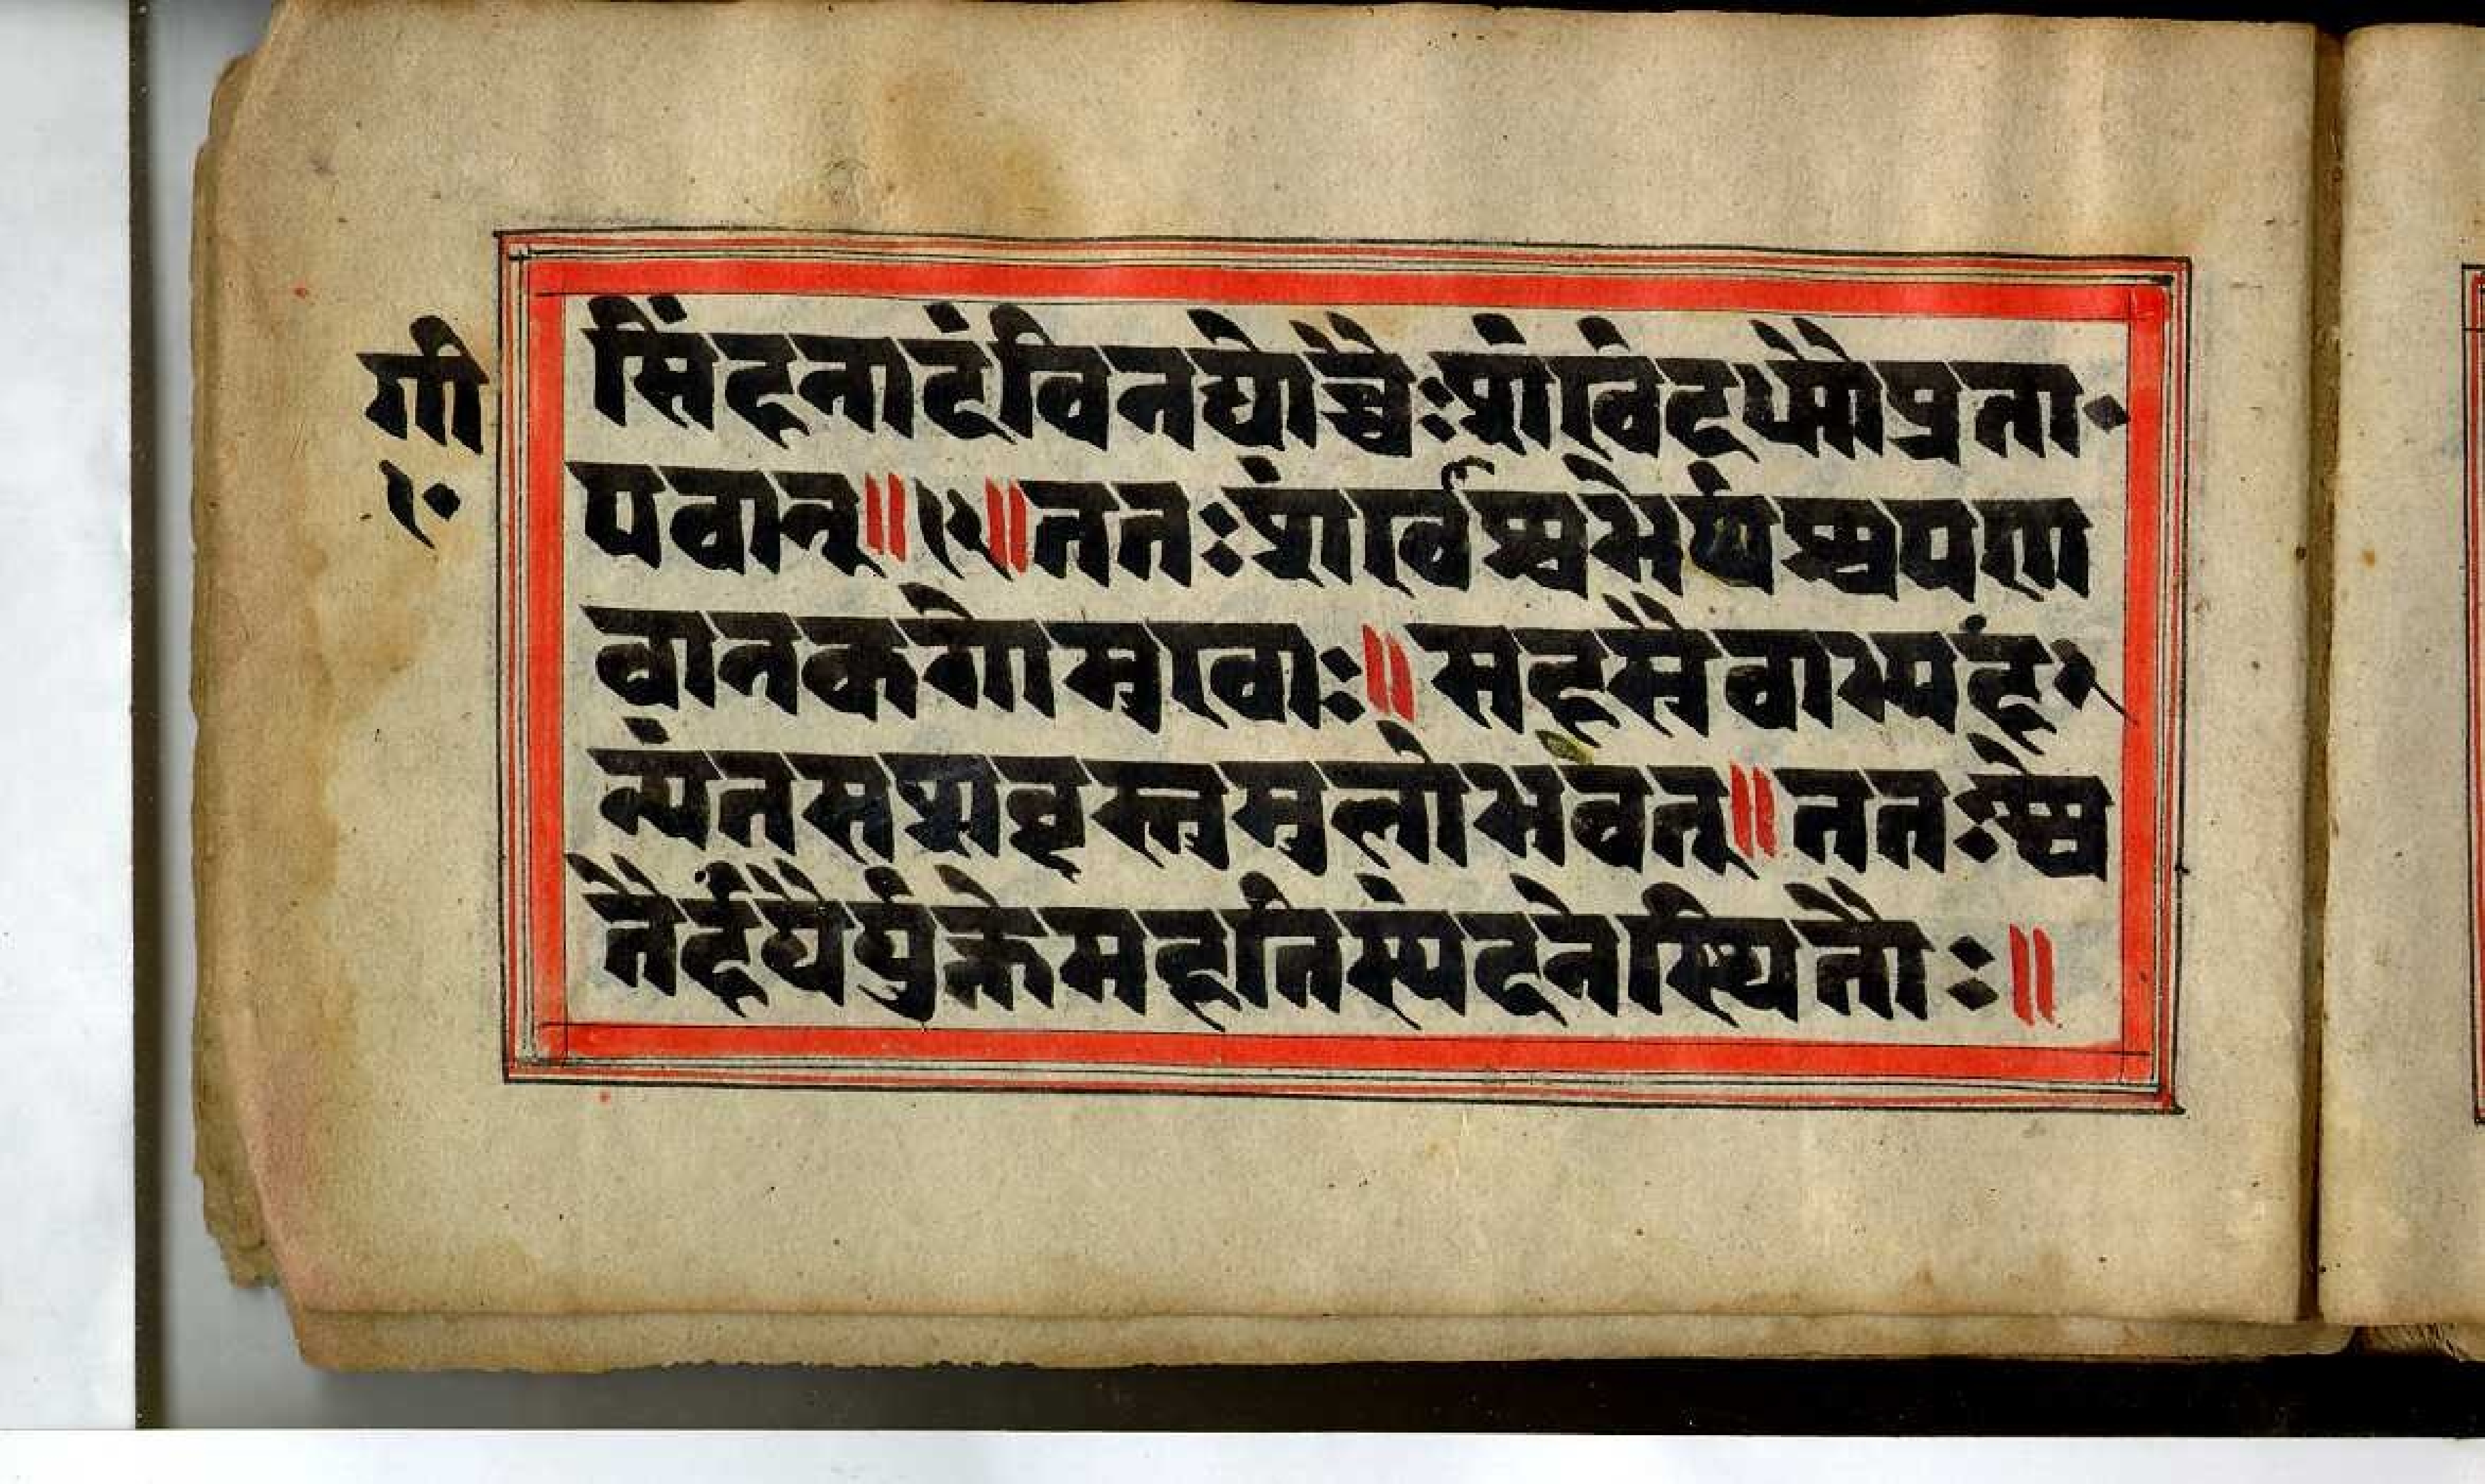 गी
१०
सिंहनादंविनद्योच्चैःशंखंदध्मौप्रता॰
पवान्॥१२॥ततःशंखाश्चभेर्यश्चपणा
वानकगोमुखाः॥सहसैवाभ्यहं॰
न्यंतसशब्दस्तुमुलोभवत्॥ततःश्वे
तैर्हयैर्युक्तेमहतिस्यंदनेस्थितौः॥